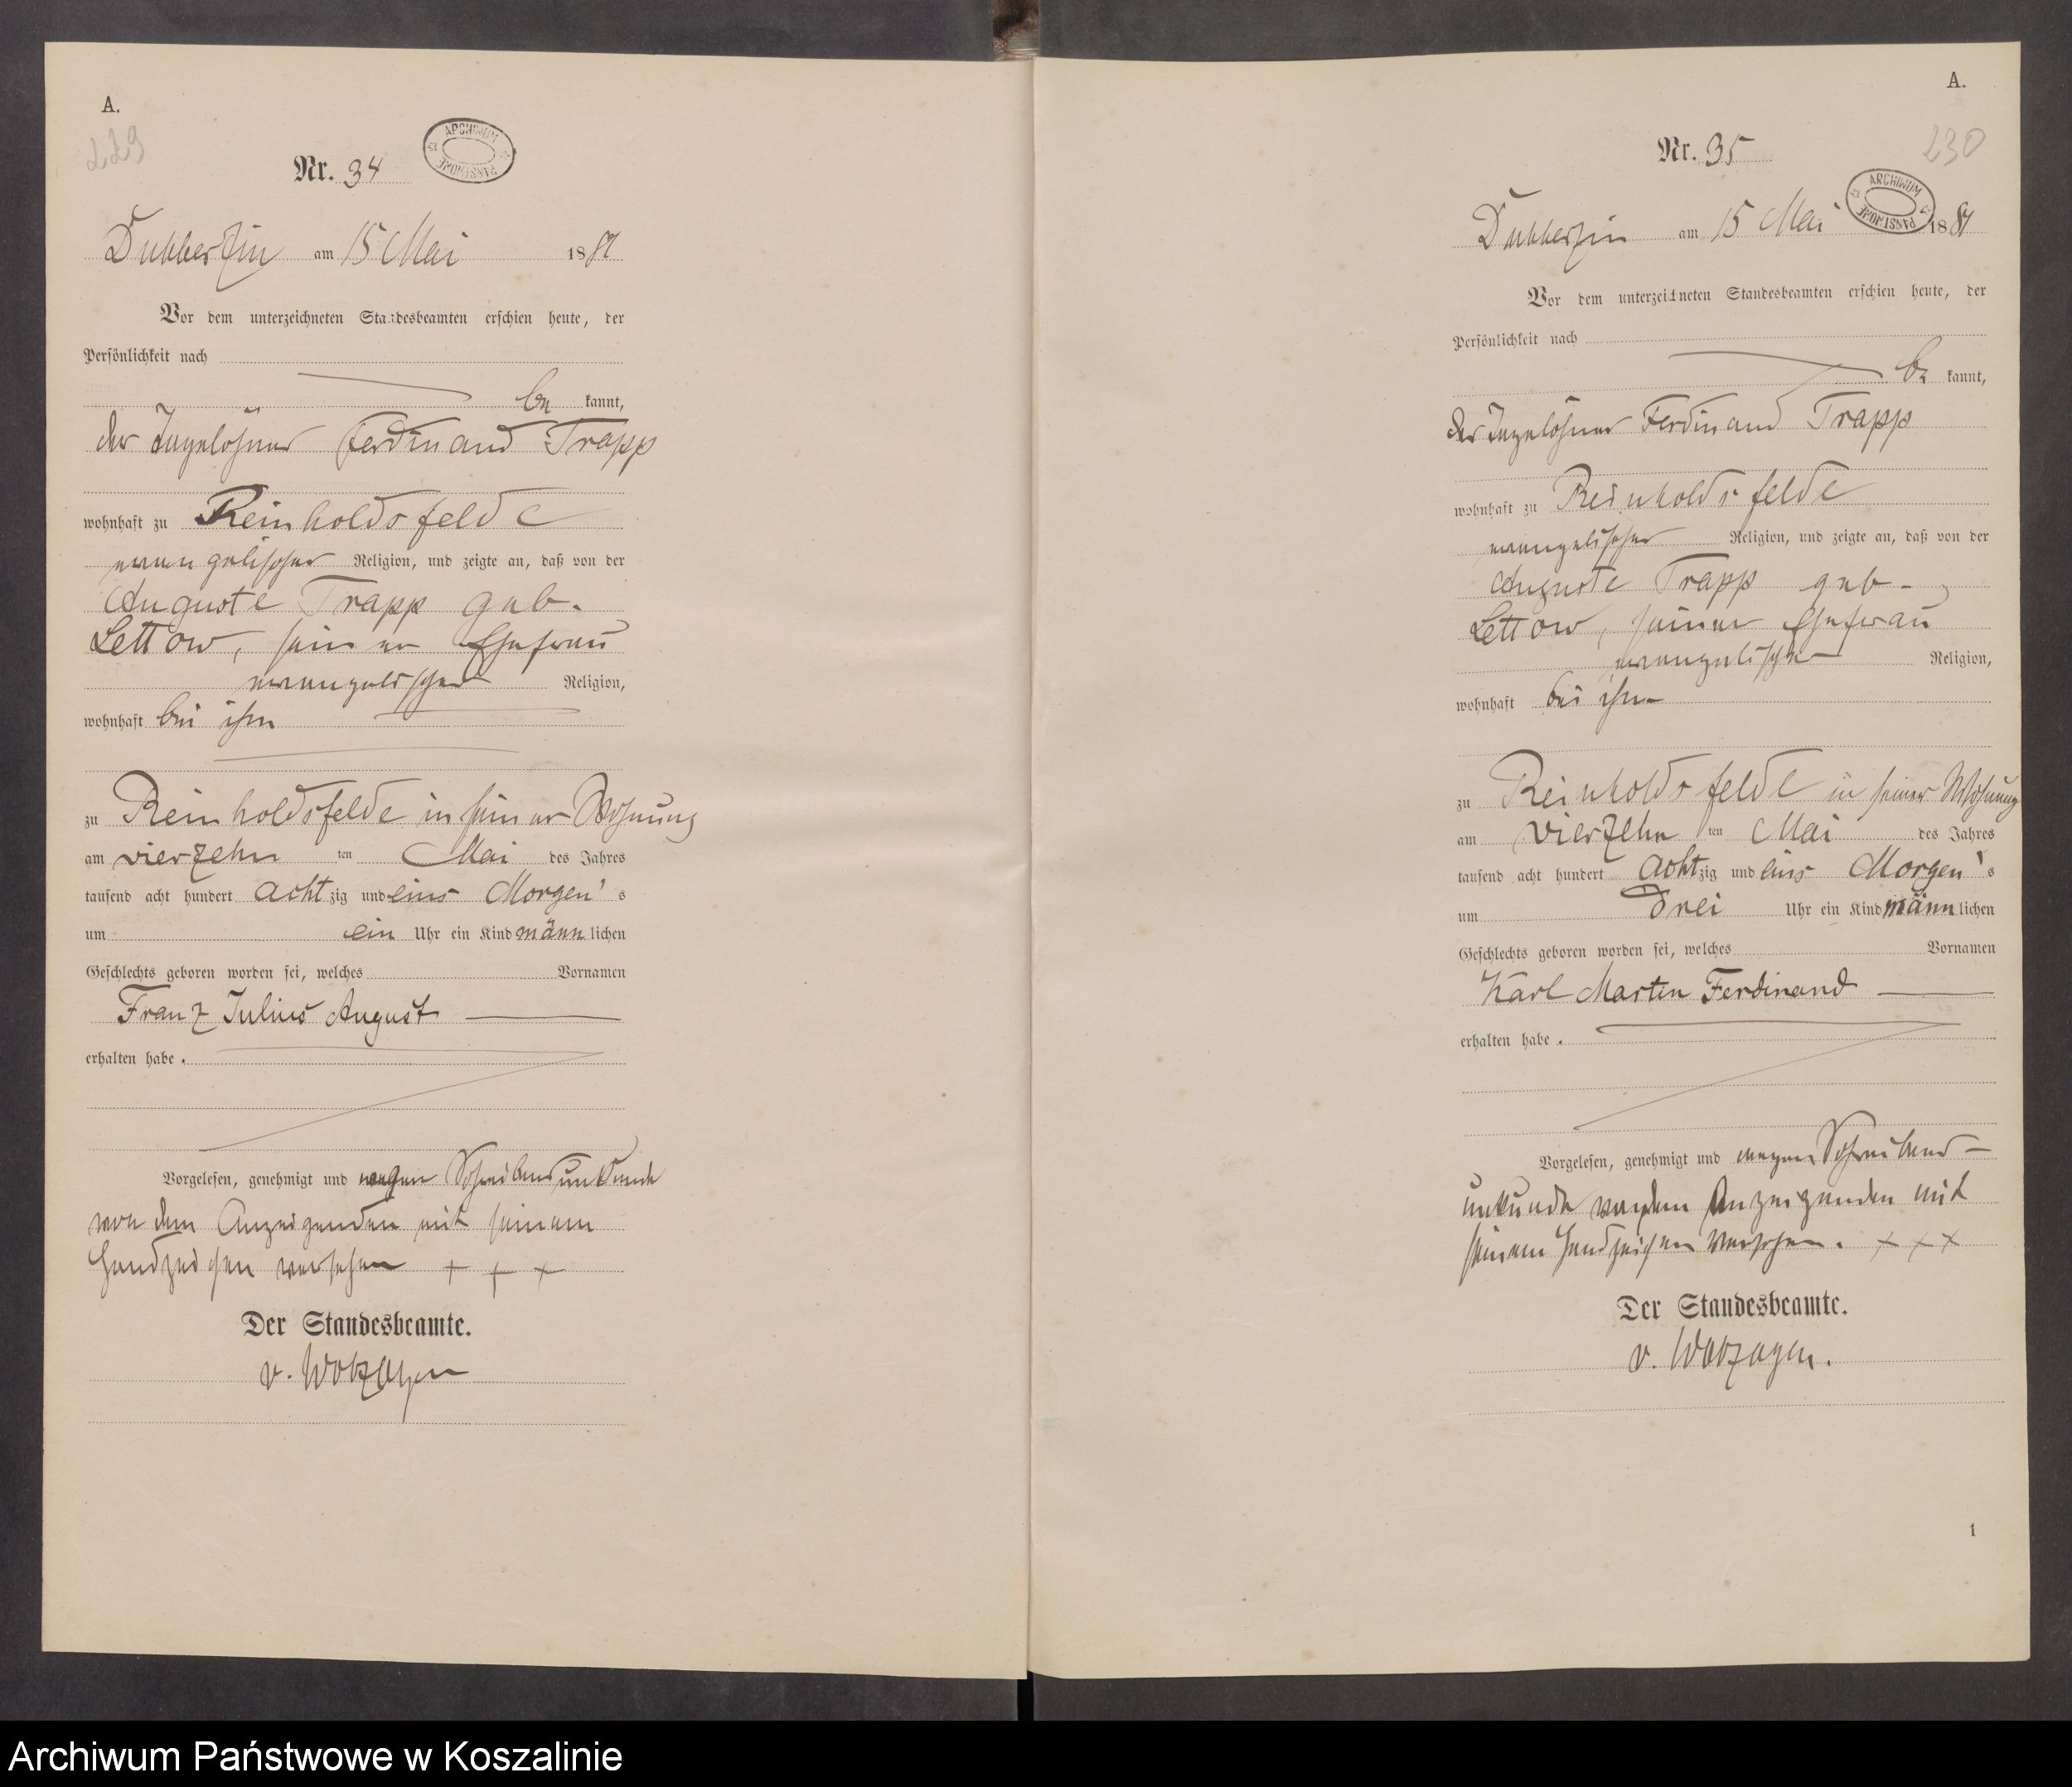 A.
229
Nr. 34
ARCHIWUM PAŃSTWOWE
Dubberzin am 15 Mai 1881
Vor dem unterzeichneten Standesbeamten erschien heute, der
Persönlichkeit nach
be kannt,
der Tagelöhner Ferdinand Trapp
wohnhaft zu Reinholdsfelde
evangelischer Religion, und zeigte an, daß von der
Auguste Trapp geb.
Lettow, seiner Ehefrau
evangelischer Religion,
wohnhaft bei ihm
zu Reinholdsfelde in seiner Wohnung
am vierzehn ten Mai des Jahres
tausend acht hundert acht zig und eins Morgen's
um ein Uhr ein Kind männ lichen
Geschlechts geboren worden sei, welches Vornamen
Franz Julius August
erhalten habe.
Vorgelesen, genehmigt und wegen Schreibensunkunde
von dem Anzeigenden mit seinem
Handzeichen versehen + + +
Der Standesbeamte.
v.
A.
230
Nr. 35
ARCHIWUM PAŃSTWOWE
Dubberzin am 15 Mai 1881
Vor dem unterzeichneten Standesbeamten erschien heute, der
Persönlichkeit nach
be kannt,
der Tagelöhner Ferdinand Trapp
wohnhaft zu Reinholdsfelde
evangelischer Religion, und zeigte an, daß von der
Auguste Trapp geb.
Lettow, seiner Ehefrau
evangelischer Religion,
wohnhaft bei ihm
zu Reinholdsfelde in seiner Wohnung
am vierzehn ten Mai des Jahres
tausend acht hundert acht zig und eins Morgen's
um drei Uhr ein Kind männ lichen
Geschlechts geboren worden sei, welches Vornamen
Karl Martin Ferdinand
erhalten habe.
Vorgelesen, genehmigt und wegen Schreibens-
unkunde von dem Anzeigenden mit
seinem Handzeichen versehen. + + +
Der Standesbeamte.
v.
1
Archiwum Państwowe w Koszalinie